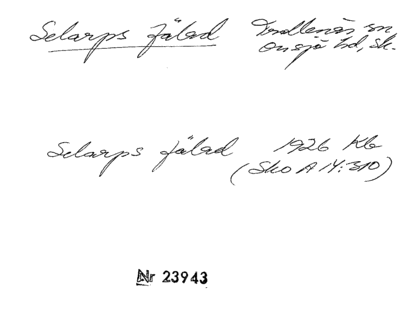 Selarps fälad Trollenäs sn
Onsjö hd, Sk.
Selarps fälad 1926 Kb
(Sko A 14:310)
Nr 23943